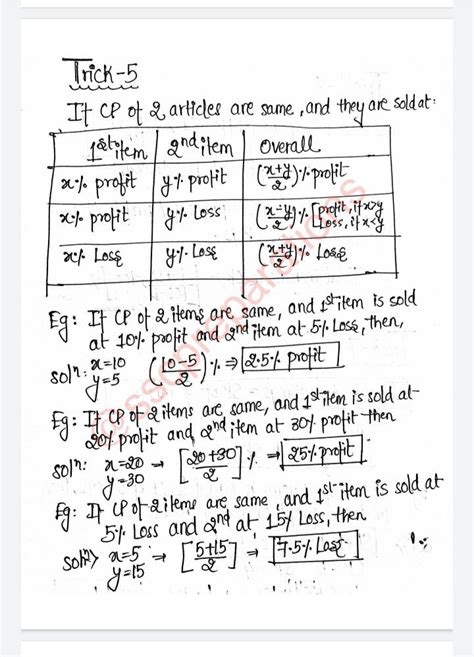 Trick-5
If CP of 2 articles are same, and they are sold at:
1st item 2nd item Overall
x% profit y% profit (x+y/2)% profit
x% profit y% Loss (x-y/2)% [profit, if x>y
Loss, if x<y
x% Loss y% Loss (x+y/2)% Loss
Eg: If CP of 2 items are same, and 1st item is sold
at 10% profit and 2nd item at 5% Loss, then,
soln: x=10
y=5 (10-5/2)% ⇒ 2.5% profit
Eg: If CP of 2 items are same, and 1st item is sold at
20% profit and 2nd item at 30% profit then
soln: x=20
y=30 → [20+30/2]% → 25% profit
Eg: If CP of 2 items are same, and 1st item is sold at
5% Loss and 2nd at 15% Loss, then
soln> x=5
y=15 → [5+15/2] → 7.5% Loss
@sscpreparations